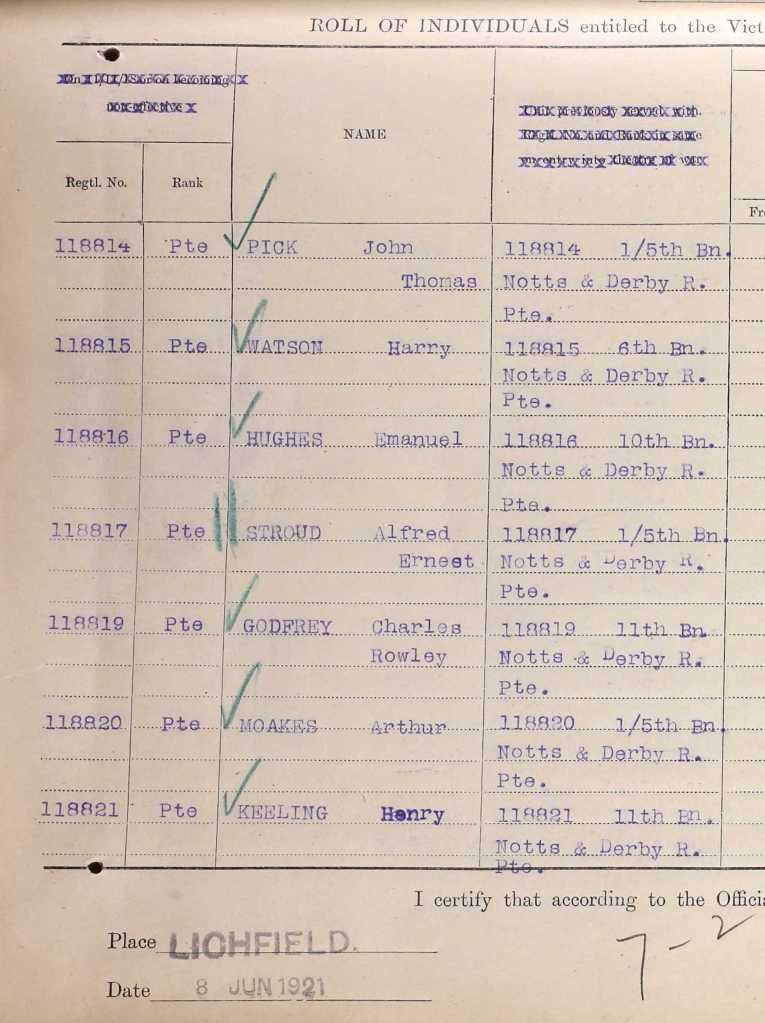 ROLL OF INDIVIDUALS entitled to the Vict
NAME
Regtl. No. Rank
Fr
118814 Pte PICK John 118814 1/5th Bn.
Thomas Notts & Derby R.
Pte.
118815 Pte WATSON Harry 118815 6th Bn.
Notts & Derby R.
Pte.
118816 Pte HUGHES Emanuel 118816 10th Bn.
Notts & Derby R.
Pte.
118817 Pte STROUD Alfred 118817 1/5th Bn.
Ernest Notts & Derby R.
Pte.
118819 Pte GODFREY Charles 118819 11th Bn.
Rowley Notts & Derby R.
Pte.
118820 Pte MOAKES Arthur 118820 1/5th Bn.
Notts & Derby R.
Pte.
118821 Pte KEELING Henry 118821 11th Bn.
Notts & Derby R.
Pte.
I certify that according to the Offici
Place LICHFIELD.
7-2
Date 8 JUN 1921